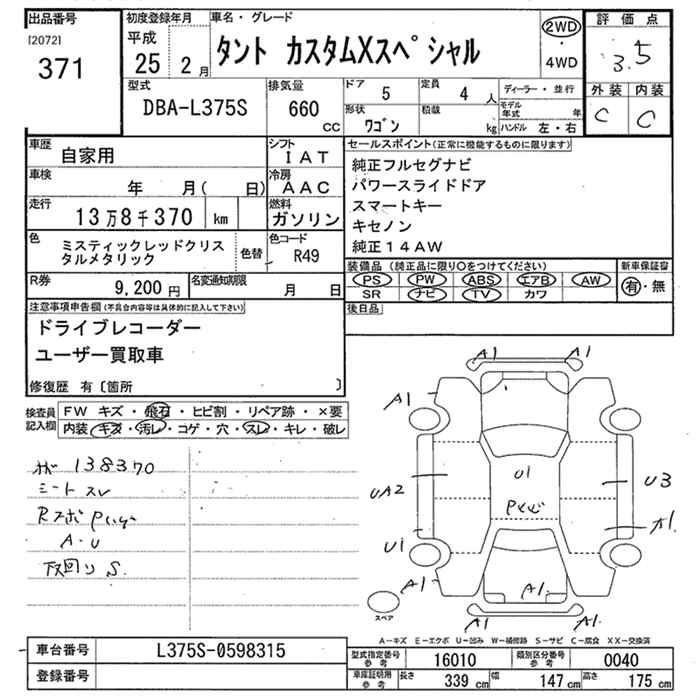 出品番号
[2072]
371
初度登録年月
平成
25 2月
車名・グレード
タント カスタムXスペシャル
2WD
・
4WD
評価点
3.5
外装 内装
C C
型式
DBA-L375S
排気量
660
CC
ドア
5
定員
4人
形状
ワゴン
積載
kg
ディーラー・並行
モデル年式
年
ハンドル 左・右
車歴
自家用
シフト
IAT
車検
年 月( 日)
冷房
AAC
走行
13万8千370 km
燃料
ガソリン
色
ミスティックレッドクリス
タルメタリック
色替
色コード
R49
R券
9,200円
名変通知期限
月 日
セールスポイント(正常に機能するものに限ります)
純正フルセグナビ
パワースライドドア
スマートキー
キセノン
純正14AW
装備品(純正品に限り○をつけてください)
PS PW ABS エアB AW
SR ナビ TV カワ
新車保証書
有・無
後日品
注意事項申告欄(不具合内容等は具体的に記入して下さい)
ドライブレコーダー
ユーザー買取車
修復歴 有〔箇所 〕
検査員
記入欄
FW キズ・飛石・ヒビ割・リペア跡・×要
内装・キズ・汚レ・コゲ・穴・スレ・キレ・破レ
138370
シートスレ
A・U
下回りS
A1 A1
A1
U1
UA2
U3
A1
U1
A1
A1
A1
A1
A1
スペア
A-キズ E-エクボ U-凹み W-補修跡 S-サビ C-腐食 XX-交換済
車台番号
L375S-0598315
登録番号
型式指定番号
参考
16010
類別区分番号
参考
0040
車庫証明用
参考
長さ
339 cm
幅
147 cm
高さ
175 cm